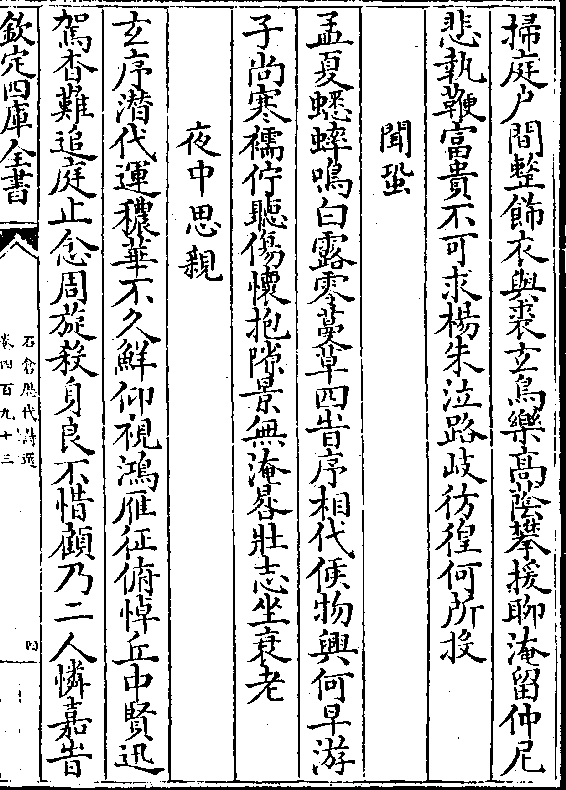 掃庭户間整飾衣與裘玄鳥樂高蔭攀援聊淹留仲尼
悲執鞭富貴不可求楊朱泣路歧彷徨何所投
聞蛩
孟夏蟋蟀鳴白露零蔓草四旹序相代候物興何早游
子尚寒襦佇聽傷懷抱隙景無淹晷壯志坐衰老
夜中思親
玄序潛代運穠華不久鮮仰視鴻雁征俯悼丘中賢迅
駕杳難追庭止念周旋殺身良不惜顧乃二人憐嘉旹
欽定四庫全書
石倉歷代詩選
卷四百九十三
四